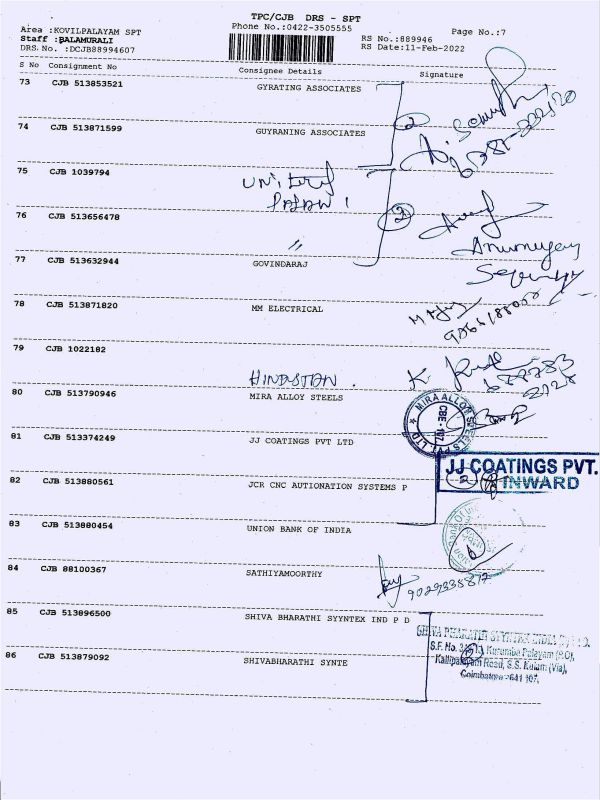 TPC/CJB DRS - SPT
Area :KOVILPALAYAM SPT Phone No.:0422-3505555 Page No.:7
Staff :BALAMURALI RS No.:889946
DRS No. :DCJB88994607 RS Date:11-Feb-2022
S No Consignment No Consignee Details Signature
73 CJB 513853521 GYRATING ASSOCIATES
74 CJB 513871599 GUYRANING ASSOCIATES
2
75 CJB 1039794
76 CJB 513656478
2
〃
77 CJB 513632944 GOVINDARAJ
78 CJB 513871820 MM ELECTRICAL
79 CJB 1022182
HINDUSTAN.
80 CJB 513790946 MIRA ALLOY STEELS
MIRA ALLOY STEELS PVT. LTD
CBE - 107
81 CJB 513374249 JJ COATINGS PVT LTD
JJ COATINGS PVT.
INWARD
82 CJB 513880561 JCR CNC AUTIONATION SYSTEMS P
2
83 CJB 513880454 UNION BANK OF INDIA
84 CJB 88100367 SATHIYAMOORTHY
9029335872
85 CJB 513896500 SHIVA BHARATHI SYYNTEX IND P D
86 CJB 513879092 SHIVABHARATHI SYNTE
Kurumba Palayam (P.O),
Kallipalayam Road, S.S. Kulam (Via),
Coimbatore - 641 107.